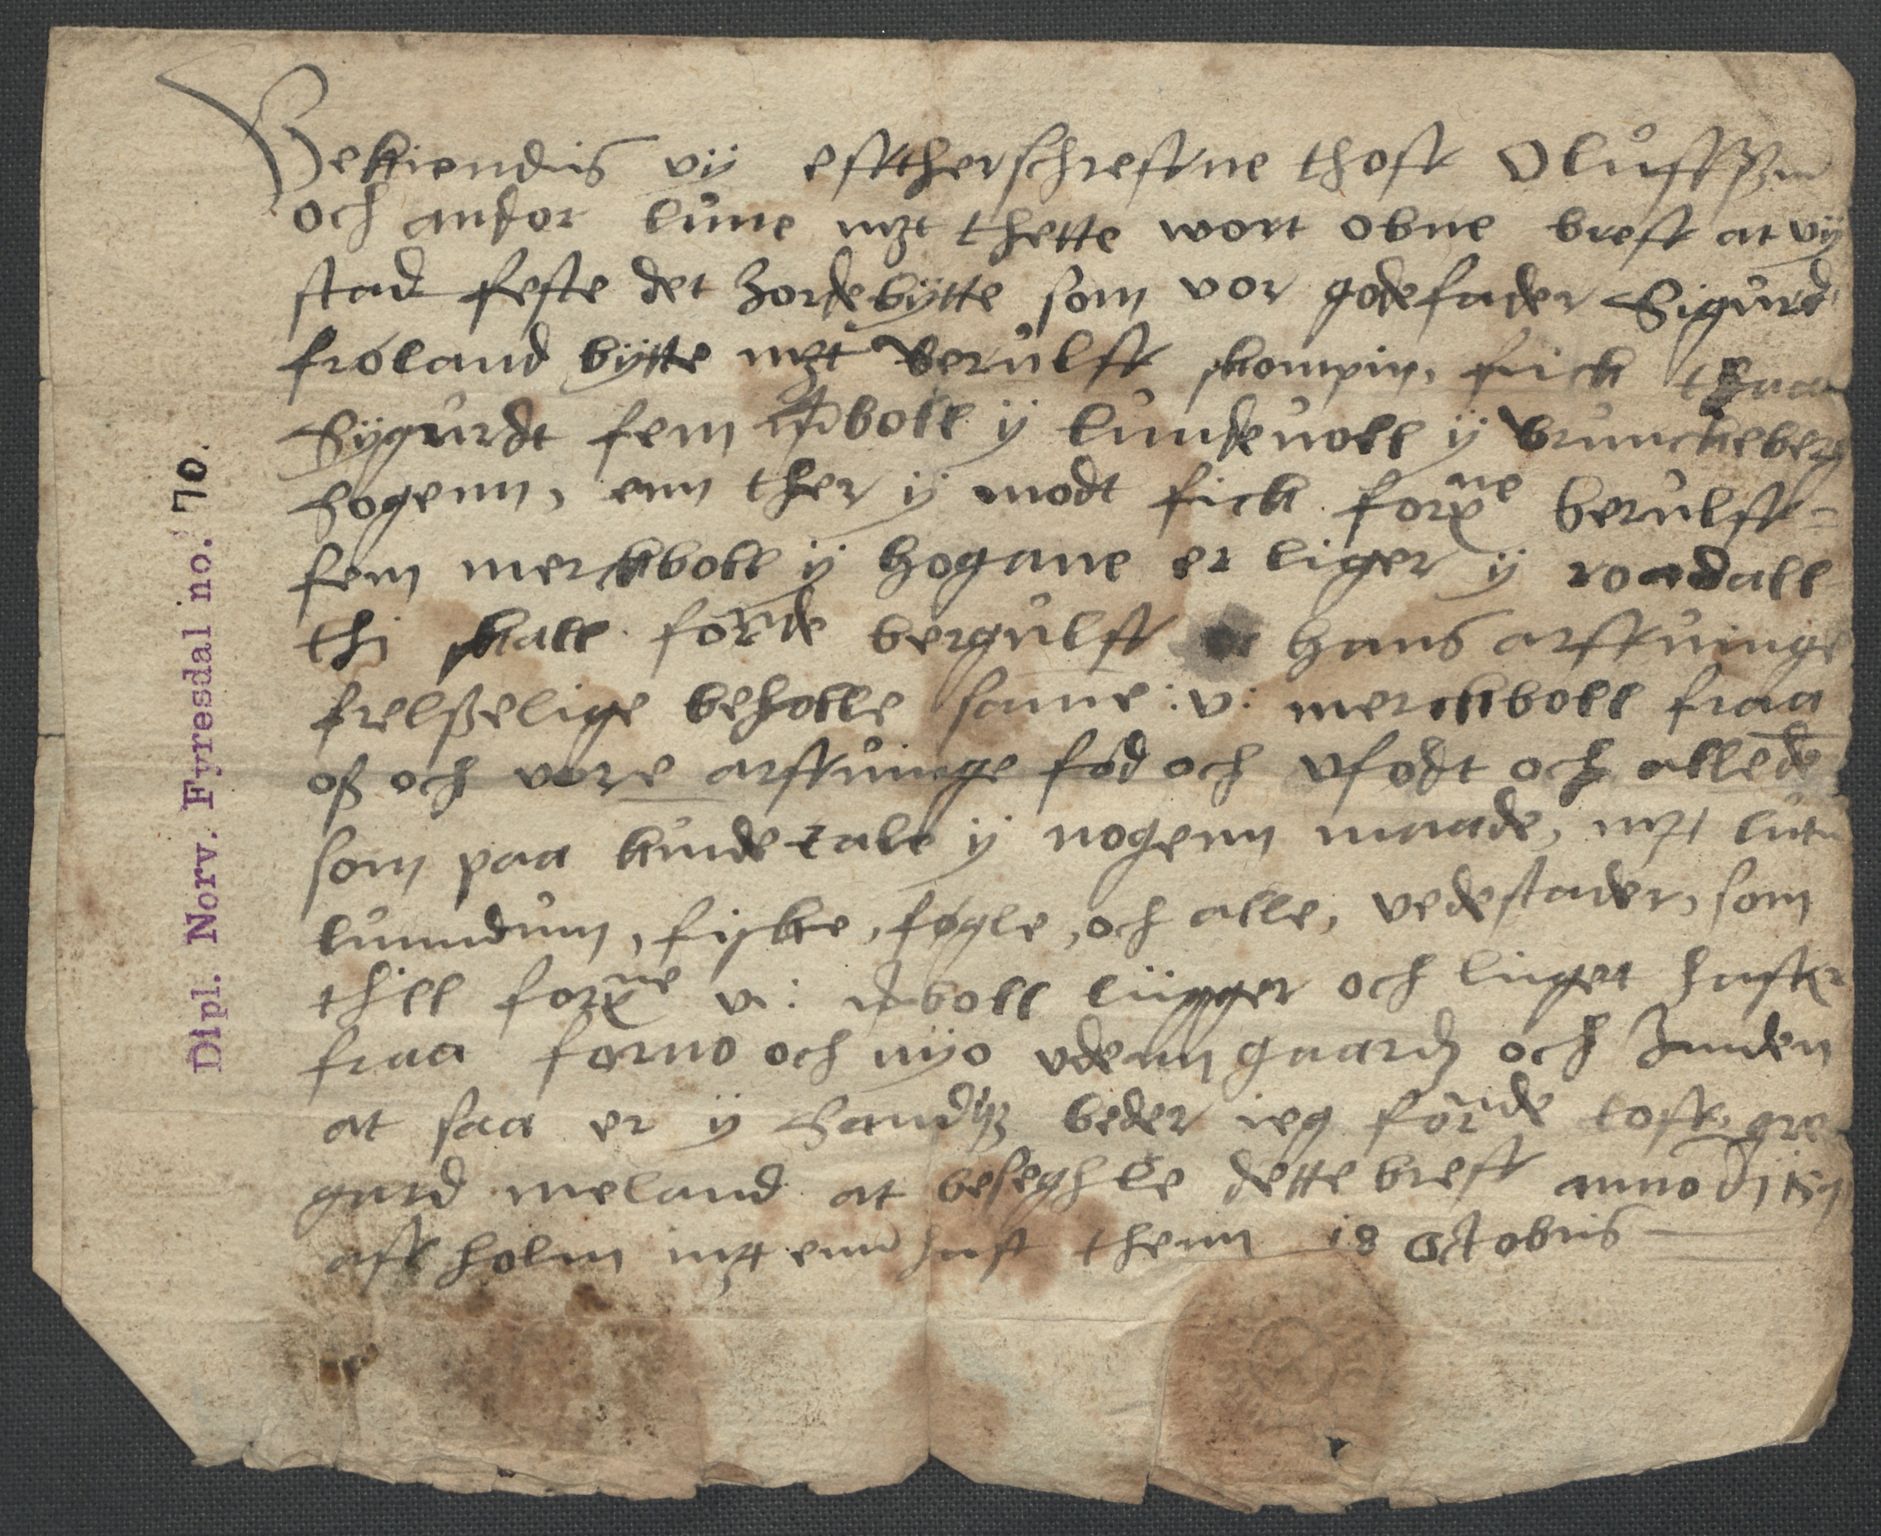 Bekiendis vij efftherschreffne thoff Oluffßøn
och andor lune mzt thette wort obne breff at vij
stad feste det Jordebytte som vor godefader Sigurd
froland bytte mzt Berulff skompin, fick thaa
Sygurdt fem mboll y lundeuoll y brunckeberg
sogenn, enn ther y modt fick forxne berulff=
fem merckboll y hogane er liger y roadall
thi skall forнde bergulff hans arffuinge
frelßelige beholle same :v: merckboll fraa
oß och vore arffuinge fød och vfødt och allede
som paa kunde tale y nogenn maade, mzt lut
lunndum, fiske, føgle, och alle, vedestader, som
thill forxne v: mboll liigger och liiget haffr
fraa forno och nyo vdenn gaardz och Innden
at saa er y sandhz beder ieg fornde toff, gre
gard meland at beseghle dette breff anno
aff holm mztt enn haff thenn 18 Octobris
Dipl. Norv. Fyresdal no. 70.